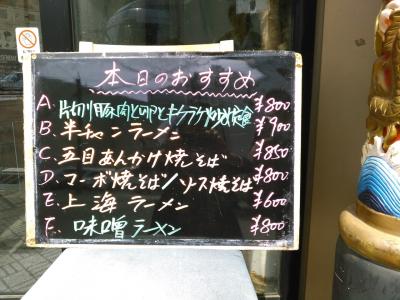 本日のおすすめ
A. 片切り豚肉と卵とキクラゲ炒め定食 ¥800
B. 半チャンラーメン ¥900
C. 五目あんかけ焼そば ¥850
D. マーボ焼そば/ソース焼そば ¥800
E. 上海ラーメン ¥600
F. 味噌ラーメン ¥800